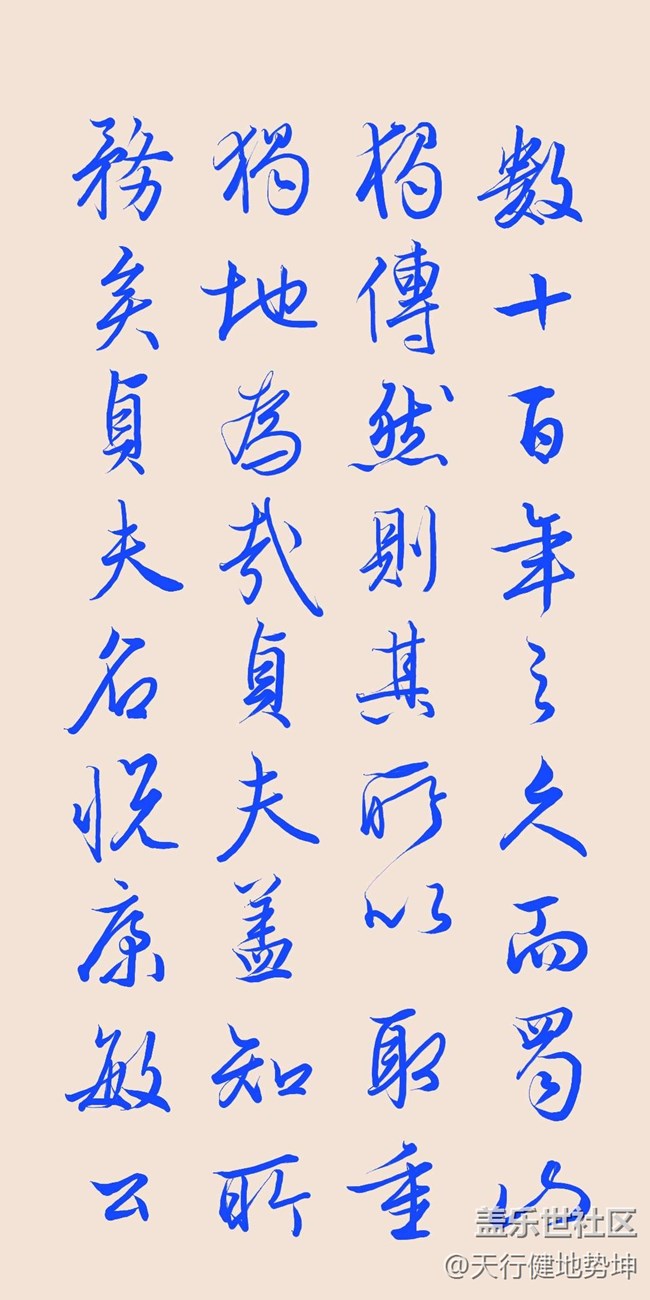 數十百年之久而蜀山
獨傳然則其所以取重
獨地為哉貞夫蓋知所
務矣貞夫名悦康敏公
盖乐世社区
@天行健地势坤